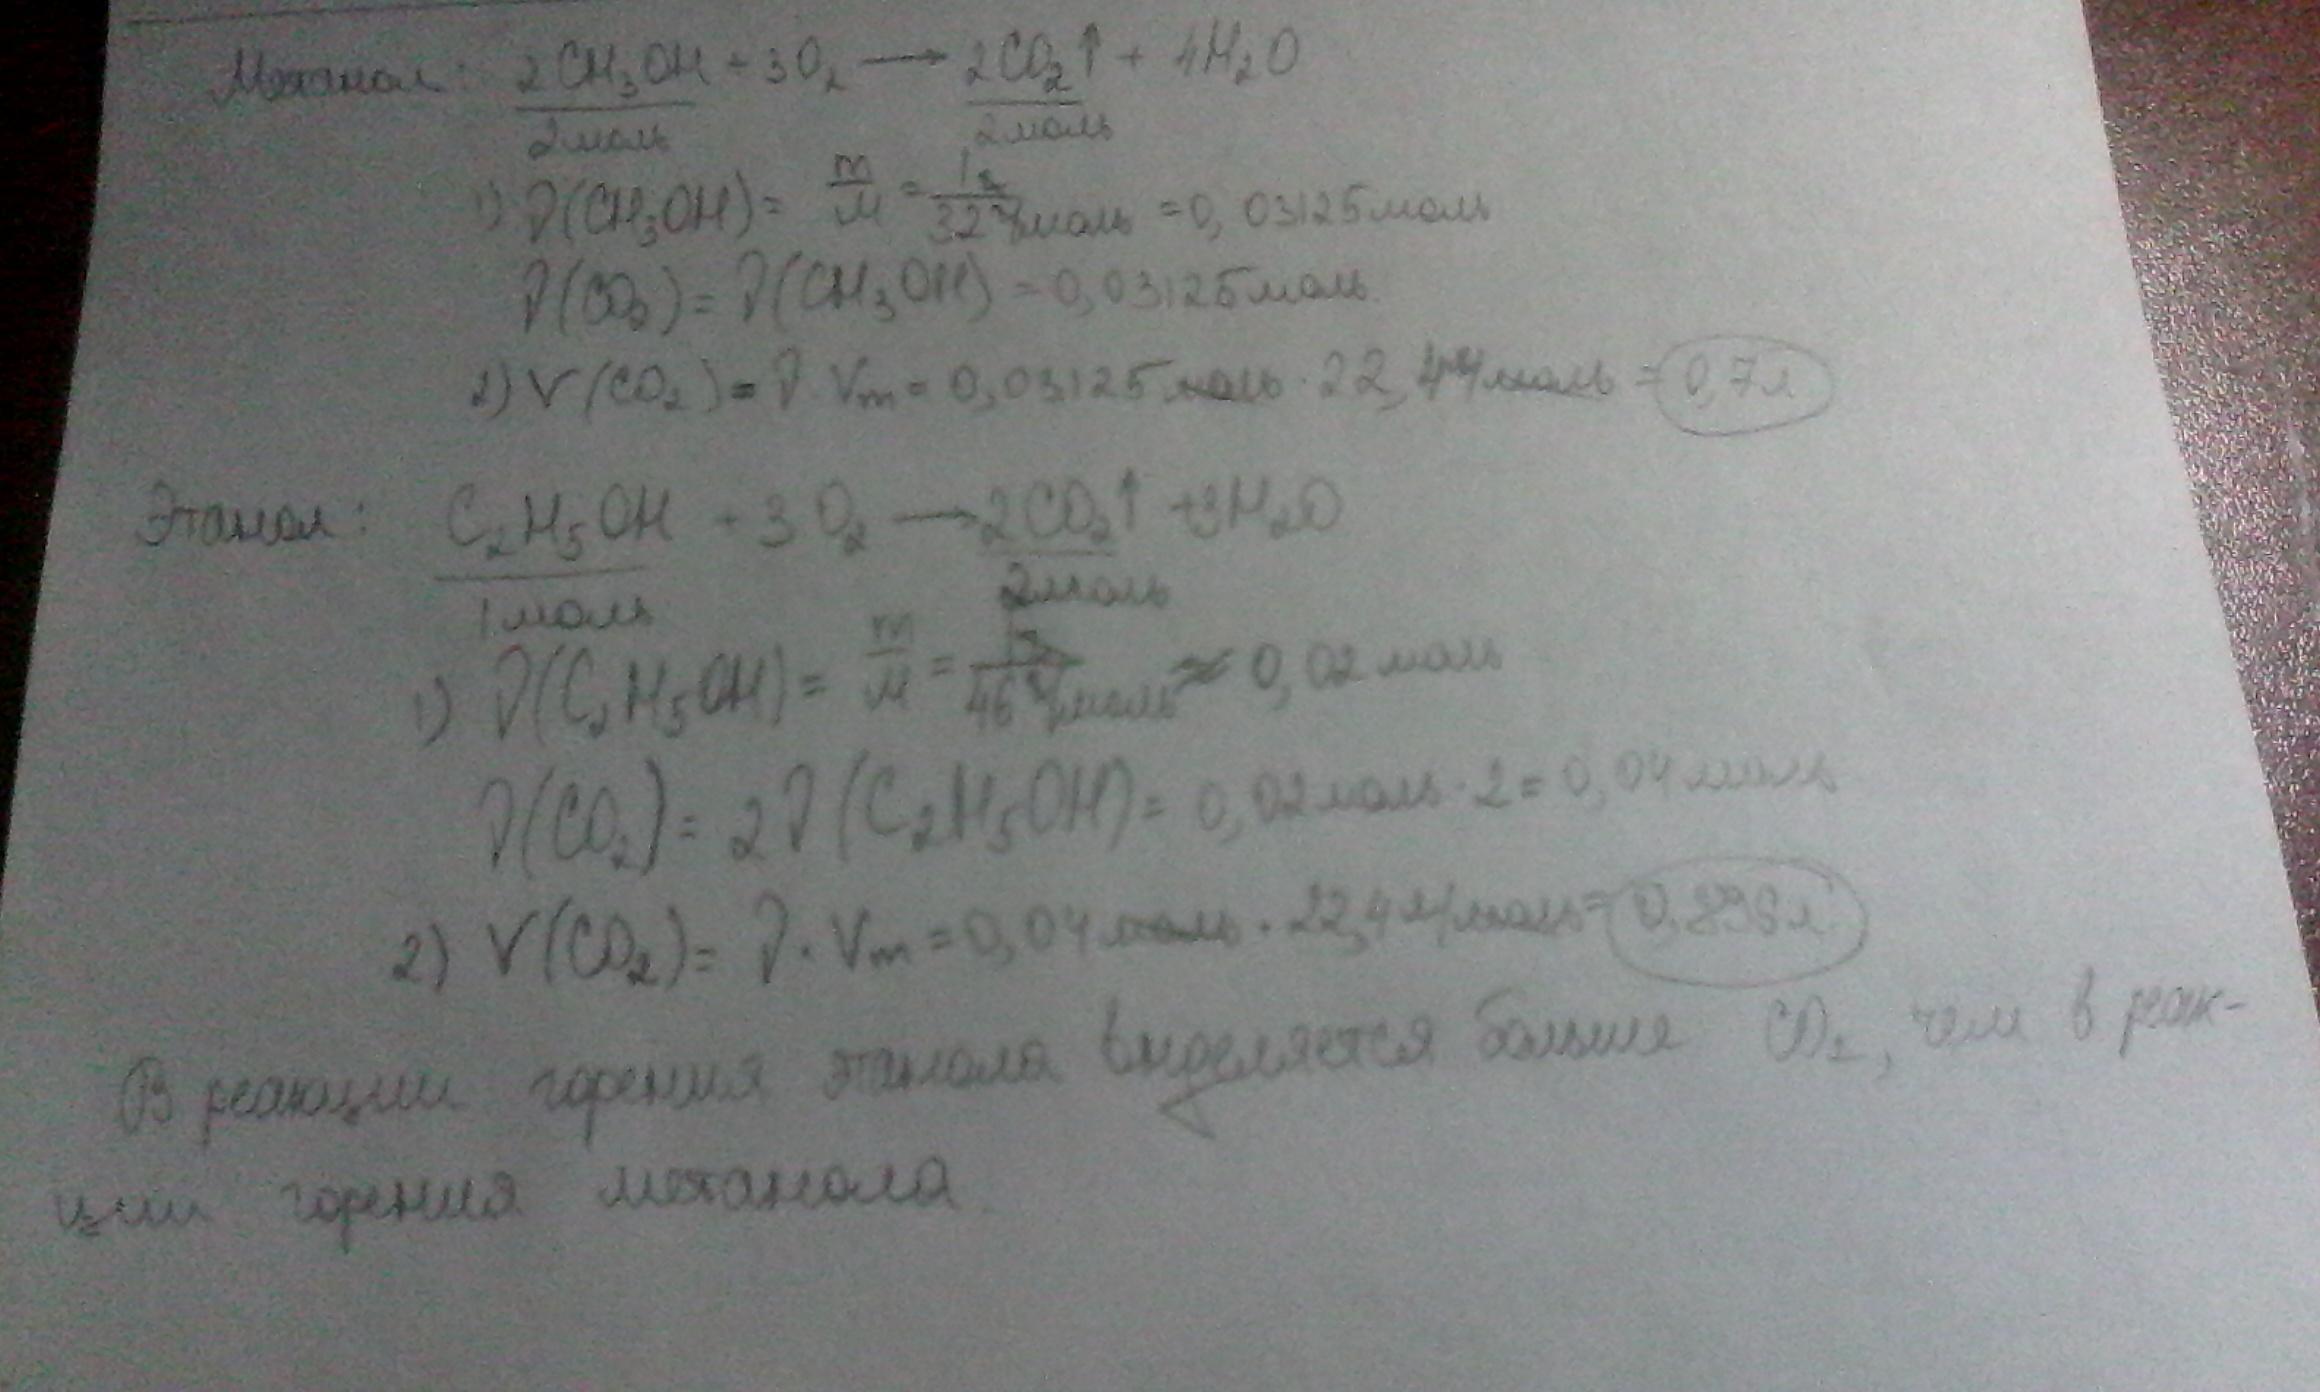 Метанол: 2CH₃OH + 3O₂ → 2CO₂↑ + 4H₂O
2 моль 2 моль
1) ν(CH₃OH) = m/M = 1г/32г/моль = 0,03125 моль
ν(CO₂) = ν(CH₃OH) = 0,03125 моль
2) V(CO₂) = ν · Vm = 0,03125 моль · 22,4 л/моль = 0,7 л
Этанол: C₂H₅OH + 3O₂ → 2CO₂↑ + 3H₂O
1 моль 2 моль
1) ν(C₂H₅OH) = m/M = 1г/46г/моль ≈ 0,02 моль
ν(CO₂) = 2ν(C₂H₅OH) = 0,02 моль · 2 = 0,04 моль
2) V(CO₂) = ν · Vm = 0,04 моль · 22,4 л/моль = 0,896 л
В реакции горения этанола выделяется больше CO₂, чем в реак-
ции горения метанола.